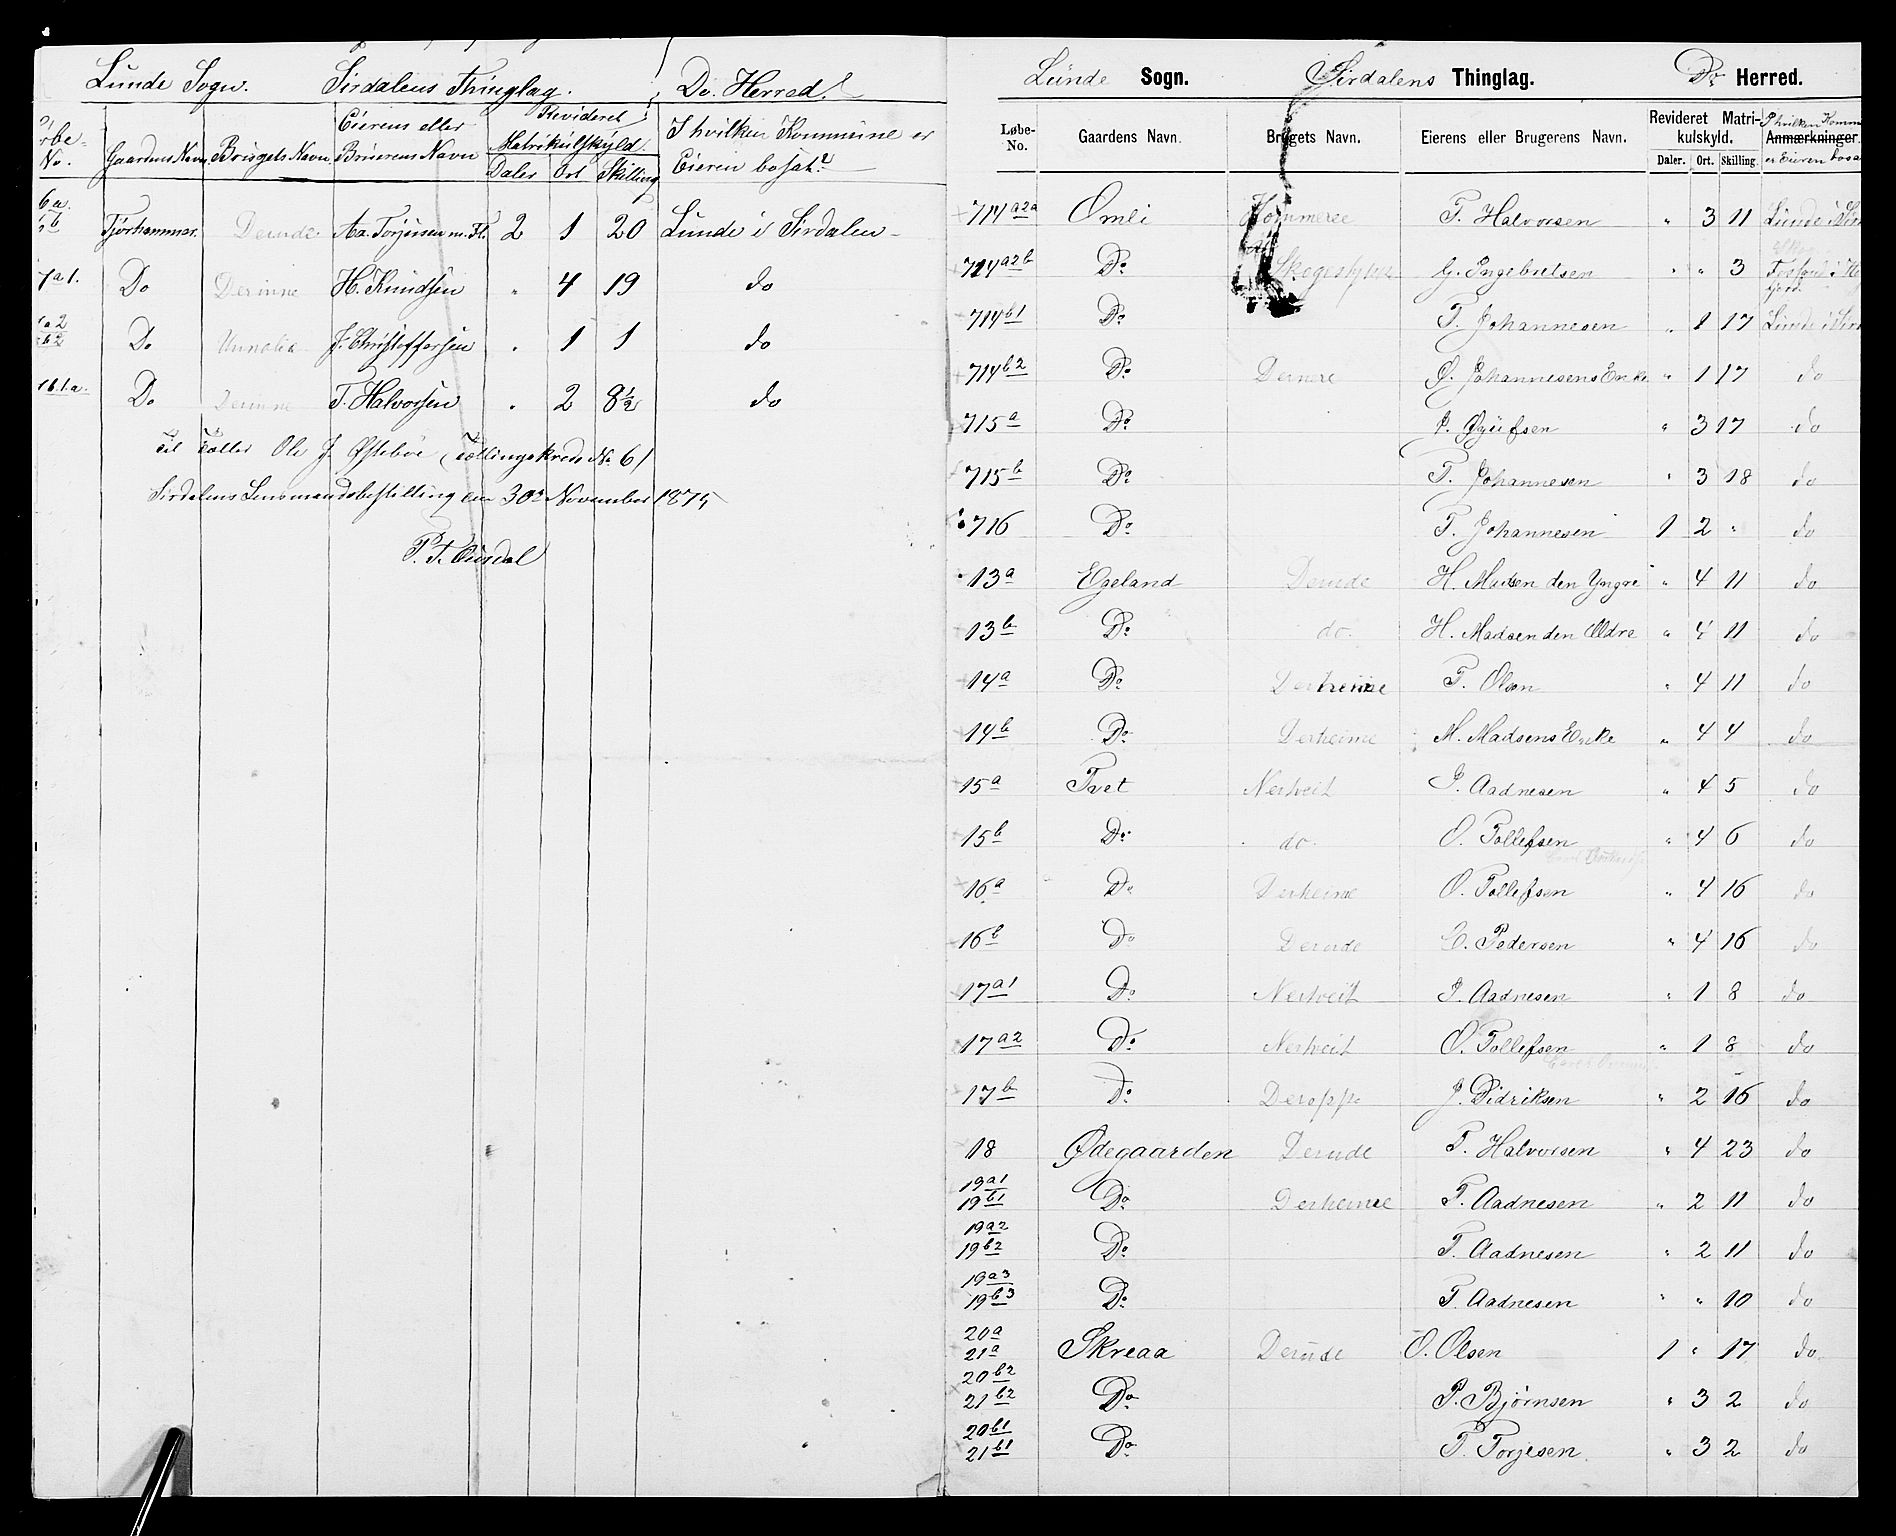 Lunde Sogn. Sirdalens Thinglag. Do. Herred.
Løbe-No. Gaardens Navn Brugets Navn Eierens eller Brugerens Navn Revideret Matrikulskyld. Daler Ort Skilling I hvilken Kommune er Eieren bosat?
6a. b Tjørhammer. Derude. Aa. Torjussen m. Fl. 2 1 20 Lunde i Sirdalen
7a1. Do Derinne H. Knudsen " 4 19 do
a2 b2 Do J. Christoffersen " 1 1 do
b.1.a. Do Derinne T. Halvorsen " 2 8½ do
Til Tæller Ole J. Østebøe (Tællingskreds No. 6)
Sirdalens Lensmandsbestilling den 30te November 1875
P. T. Ousdal
Lunde Sogn. Sirdalens Thinglag. Do Herred.
Løbe-No. Gaardens Navn. Brugets Navn. Eierens eller Brugerens Navn. Revideret Matrikulskyld. Daler. Ort. Skilling. Anmærkninger. I hvilken Komm er Eieren bosa
714a2a Omli T. Halvorsen " 3 11 Lunde i Sir
714a2b Do G. Ingebretsen " " 3
714b1 Do T. Johannesen " 1 17 Lunde i Sir
714b2 Do Dernere O. Johannesens Enke " 1 17 do
715a Do " 3 17 do
715b Do T. Johannesen " 3 18 do
716 Do T. Johannesen 1 2 " do
13a Egeland Derude H. Madsen den Yngre " 4 11 do
13b Do do. H. Madsen den Ældre " 4 11 do
14a Do Derheime T. Olsen " 4 11 do
14b Do Derheime M. Madsens Enke " 4 4 do
15a Tvet Nertveit P. Aadnesen " 4 5 do
15b Do do. O. Tollefsen " 4 6 do
16a Do Derheime O. Tollefsen " 4 16 do
16b Do Derude C. Pedersen " 4 16 do
17a1 Do Nertveit P. Aadnesen " 1 8 do
17a2 Do Nertveit O. Tollefsen " 1 8 do
17b Do Deroppe J. Didriksen " 2 16 do
18 Ødegaarden Derude T. Halvorsen " 4 23 do
19a1 19b1 Do Derheime T. Aadnesen " 2 11 do
19a2 19b2 Do T. Aadnesen " 2 11 do
19a3 19b3 Do T. Aadnesen " " 10 do
20a 21a Skreaa Derude O. Olsen 1 " 17 do
20b2 21b2 Do P. Bjørnsen " 3 2 do
20b1 21b1 Do T. Torjesen. " 3 2 do